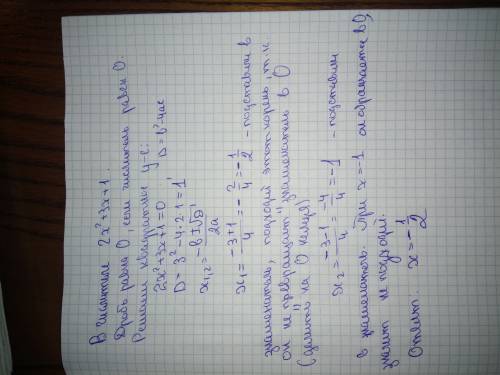 В числителе 2x²+3x+1.
Дробь равна 0, если числитель равен 0.
Решаем квадратное ур-е:
2x²+3x+1=0
D = b²-4ac
D = 3²-4·2·1=1
x₁,₂ = (-b±√D)/2a
x₁ = (-3+1)/4 = -2/4 = -1/2 - подставим в
знаменатель, подходит этот корень, т.к.
он не "превращает" знаменатель в 0
(делить на 0 нельзя)
x₂ = (-3-1)/4 = -4/4 = -1 - подставим
в знаменатель. При x=-1 он обращается в 0,
значит не подходит.
Ответ: x = -1/2